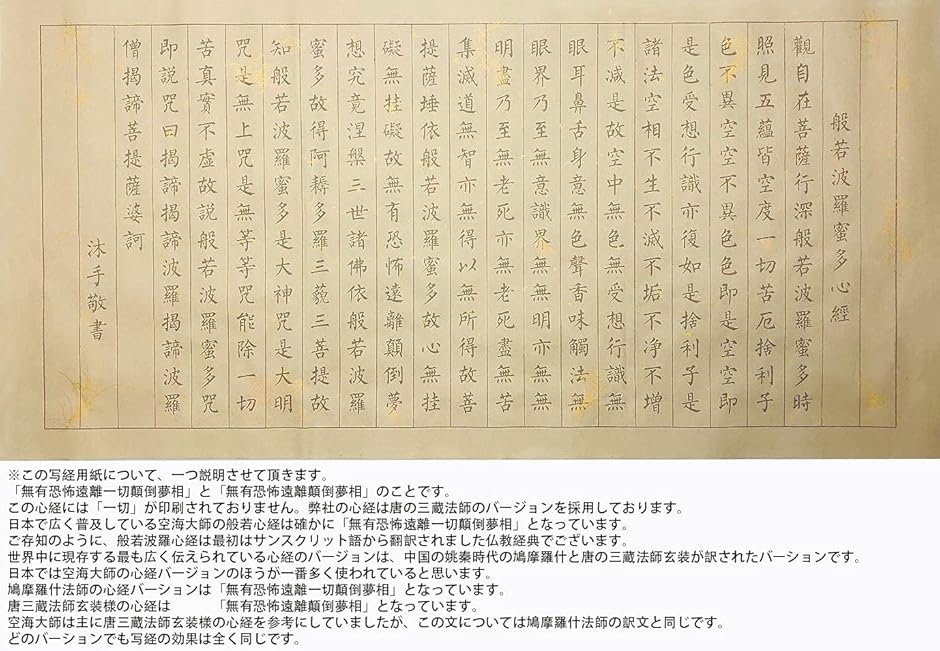 般若波羅蜜多心經
觀自在菩薩行深般若波羅蜜多時
照見五蘊皆空度一切苦厄捨利子
色不異空空不異色色即是空空即
是色受想行識亦復如是捨利子是
諸法空相不生不滅不垢不净不增
不減是故空中無色無受想行識無
眼耳鼻舌身意無色聲香味觸法無
眼界乃至無意識界無無明亦無無
明盡乃至無老死亦無老死盡無苦
集滅道無智亦無得以無所得故菩
提薩埵依般若波羅蜜多故心無挂
礙無挂礙故無有恐怖遠離顛倒夢
想究竟涅槃三世諸佛依般若波羅
蜜多故得阿耨多羅三藐三菩提故
知般若波羅蜜多是大神咒是大明
咒是無上咒是無等等咒能除一切
苦真實不虛故說般若波羅蜜多咒
即說咒曰揭諦揭諦波羅揭諦波羅
僧揭諦菩提薩婆訶
沐手敬書
※この写経用紙について、一つ説明させて頂きます。
「無有恐怖遠離一切顛倒夢相」と「無有恐怖遠離顛倒夢相」のことです。
この心経には「一切」が印刷されておりません。弊社の心経は唐の三蔵法師のバージョンを採用しております。
日本で広く普及している空海大師の般若心経は確かに「無有恐怖遠離一切顛倒夢相」となっています。
ご存知のように、般若波羅心経は最初はサンスクリット語から翻訳されました仏教経典でございます。
世界中に現存する最も広く伝えられている心経のバージョンは、中国の姚秦時代の鳩摩羅什と唐の三蔵法師玄装が訳されたバーションです。
日本では空海大師の心経バージョンのほうが一番多く使われていると思います。
鳩摩羅什法師の心経バーションは「無有恐怖遠離一切顛倒夢相」となっています。
唐三蔵法師玄装様の心経は 「無有恐怖遠離顛倒夢相」となっています。
空海大師は主に唐三蔵法師玄装様の心経を参考にしていましたが、この文については鳩摩羅什法師の訳文と同じです。
どのバーションでも写経の効果は全く同じです。